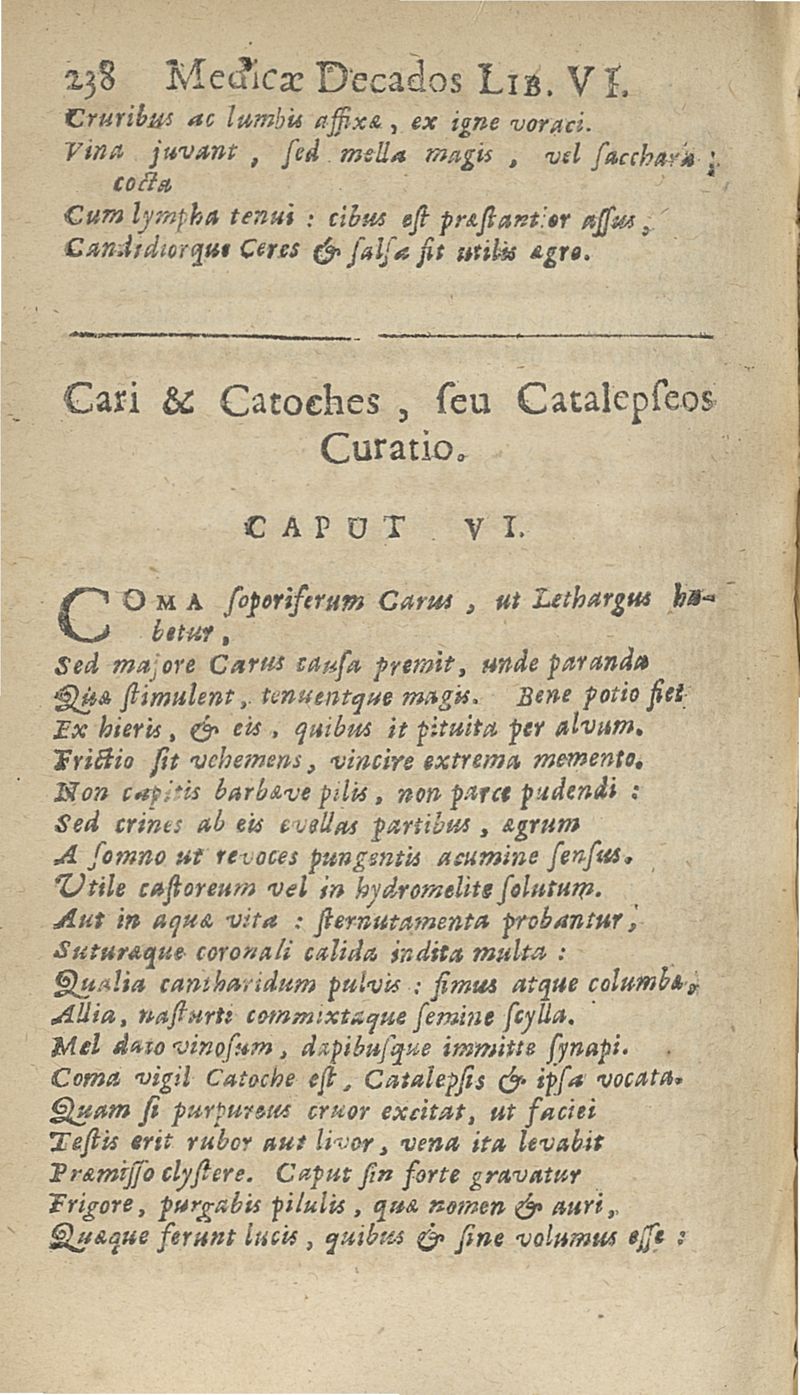 238 Medicæ Decados LIB. VI.
Cruribus ac lumbis affixæ, ex igne voraci.
Vina juvant, ſed mella magis, vel ſacchara;
cocta
Cum lympha tenui : cibus eſt præſtantior aſſus,
Candidiorque Ceres & ſalſa ſit utilis ægro.
Cari & Catoches, ſeu Catalepſeos
Curatio.
CAPUT VI.
COMA ſoporiferum Carus, ut Lethargus ha-
betur,
Sed majore Carus cauſa premit, unde paranda
Quæ ſtimulent, tenuentque magis. Bene potio fiet
Ex hieris, & eis, quibus it pituita per alvum.
Frictio ſit vehemens, vincire extrema memento.
Non capitis barbæve pilis, non parce pudendi :
Sed crines ab eis evellas partibus, ægrum
A ſomno ut revoces pungentis acumine ſenſus.
Utile caſtoreum vel in hydromelite ſolutum.
Aut in aqua vitæ : ſternutamenta probantur,
Suturæque coronali calida indita multa :
Qualia cantharidum pulvis : fimus atque columbæ,
Allia, naſturti commixtaque ſemine ſcylla.
Mel dato vinoſum, dapibuſque immitte ſynapi.
Coma vigil Catoche eſt, Catalepſis & ipſa vocata.
Quam ſi purpureus cruor excitat, ut faciei
Teſtis erit rubor aut livor, vena ita levabit
Præmiſſo clyſtere. Caput ſin forte gravatur
Frigore, purgabis pilulis, quæ nomen & auri,
Quæque ferunt lucis, quibus & ſine volumus eſſe :